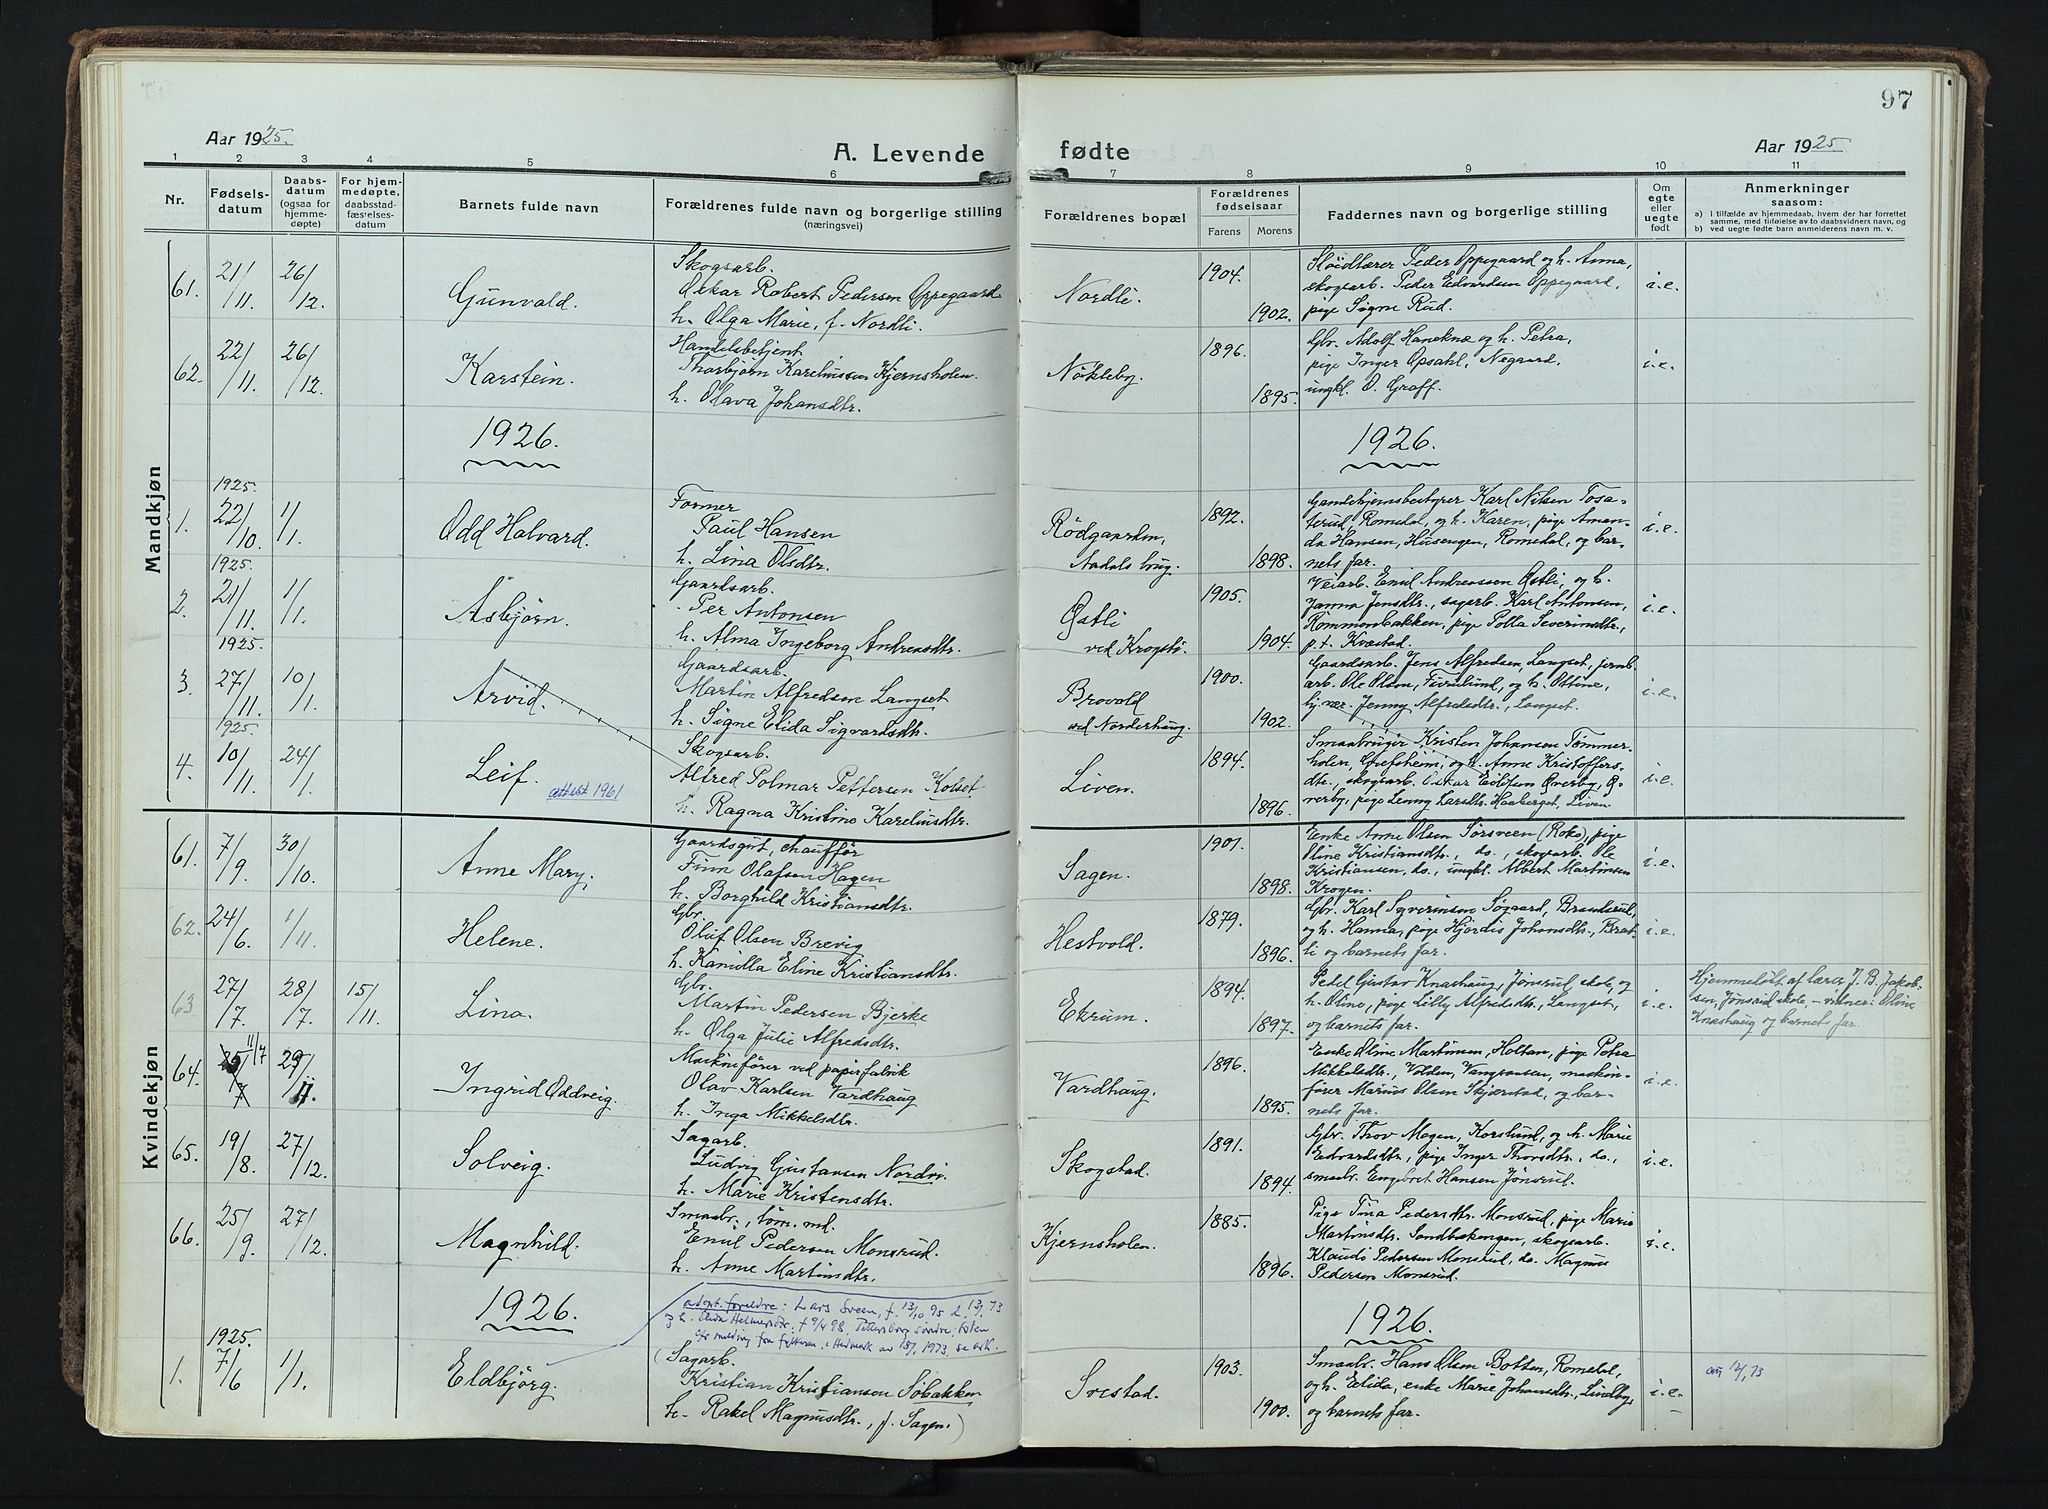 97
Aar 1925.
A. Levende fødte
Aar 1925
1 2 3 4 5 6 7 8 9 10 11
Nr.
Fødsels-
datum
Daabs-
datum
(ogsaa for
hjemme-
døpte)
For hjem-
medøpte,
daabsstad-
fæstelses-
datum
Barnets fulde navn
Forældrenes fulde navn og borgerlige stilling
(næringsvei)
Forældrenes bopæl
Forældrenes
fødselsaar
Farens Morens
Faddernes navn og borgerlige stilling
Om
egte
eller
uegte
født
Anmerkninger
saasom:
a) i tilfælde av hjemmedaab, hvem der har forrettet
samme, med tilføielse av to daabsvidners navn, og
b) ved uegte fødte barn anmelderens navn m. v.
Mandkjøn
61. 21/11. 26/12. Gunvald.
Skogsarb.
Oskar Robert Pedersen Oppegaard
h. Olga Marie, f. Nordli.
Nordli. 1904. 1902.
Sløidlærer Peder Oppegaard og h. Anna,
skogsarb. Peder Edvardsen Oppegaard,
pige Signe Rud.
i.e.
62. 22/11. 26/12 Karstein.
Handelsbetjent
Thorbjørn Kareliussen Kjernsholen.
h. Olava Johansdtr.
Nökleby. 1896. 1895.
Gbr. Adolf Haneknæ og h. Petra,
pige Inger Opsahl, Negaard,
ungkl. O. Graff.
i.e.
1926. 1926.
1925.
1. 22/10. 1/1. Odd Halvard.
Former
Paul Hansen
h. Lina Olsdtr.
Rödgaarden,
Aadals brug. 1892. 1898.
Gamlehjemsbestyrer Karl Nilsen Tosa-
terud, Romedal, og h. Karen, pige Aman-
da Hansen, Husengen, Romedal, og bar-
nets far.
i.e.
1925.
2. 21/11. 1/1. Asbjørn.
Gaardsarb.
Per Antonsen
h. Alma Ingeborg Andreasdtr.
Østli
ved Krogstö. 1905. 1904.
Veiarb. Emil Andreassen Østli, og h.
Janna Jensdtr., sagarb. Karl Antonsen,
Rømmenbakken, pige Polla Severinsdtr.,
p.t. Kvæstad.
i.e.
1925.
3. 27/11. 10/1. Arvid.
Gaardsarb.
Martin Alfredsen Langset
h. Signe Elida Sigvardsdtr.
Brovold
ved Norderhaug. 1900. 1902.
Gaardsarb. Jens Alfredsen, Langset, jernb.
arb. Ole Olsen, Furulund, og h. Ottine,
Jenny Alfredsdtr., Langset.
i.e.
1925.
4. 10/11. 24/1. Leif. attest 1961
Skogsarb.
Alfred Polmar Pettersen Kolset
h. Ragna Kristine Kareliusdtr.
Liven. 1894. 1896.
Smaabruger Kristen Johansen Tømmer-
holen, Grefsheim, og h. Anne Kristoffers-
dtr., skogsarb. Oskar Øverby, Ø-
verby, pige Lenny Larsdtr. Haaberget, Liven.
i.e.
Kvindekjøn
61. 7/9. 30/10. Anne Mary.
Gaardsgut, chauffør
Finn Olafsen Hagen
h. Borghild Kristiansdtr.
Sagen. 1901. 1898.
Enke Anne Olsen Sørsveen (Roko), pige
Oline Kristiansdtr., do., skogsarb. Ole
Kristiansen, do., ungkl. Albert Martinsen
Krogen.
i.e.
62. 24/6. 1/11. Helene.
Gbr.
Oluf Olsen Brevig
h. Kamilla Eline Kristiansdtr.
Hestvold. 1879. 1896.
Gbr. Karl Syverinsen Søgaard, Brandsrud,
og h. Hanna, pige Hjørdis Johansdtr., Brat-
li og barnets far.
i.e.
63. 27/7. 28/7. 15/11. Lina.
Gbr.
Martin Pedersen Bjerke
h. Olga Julie Alfredsdtr.
Ekrum. 1894. 1897.
Pedel Gustav Knashaug, Jønsrud skole, og
h. Oline, pige Lilly Alfredsdtr., Langset,
og barnets far.
i.e.
Hjemmedøbt af lærer J. B. Jakob-
sen, Jønsrud skole, – vidner: Oline
Knashaug og barnets far.
64. 11/7 29/11. Ingrid Oddveig.
Maskinfører ved papirfabrik
Olav Karlsen Vardhaug
h. Inga Mikkelsdtr.
Vardhaug. 1896. 1895.
Enke Oline Martinsen, Holtan, pige Petra
Mikkelsdtr., Volden, Vangsaasen, maskin-
fører Marius Olsen Skjærstad, og bar-
nets far.
i.e.
65. 19/8. 27/12. Solveig.
Sagarb.
Ludvig Gustavsen Nordvi.
h. Marie Kristensdtr.
Skogstad. 1891. 1894.
Gbr. Thov Magen, Korslund, og h. Marie
Edvardsdtr., pige Inger Thovsdtr., do.,
smaabr. Engebret Hansen Jønsrud.
i.e.
66. 25/9. 27/12. Magnhild.
Smaabr., tøm. md.
Emil Pedersen Monsrud.
h. Anne Martinsdtr.
Kjernsholen. 1885. 1896.
Pige Tina Pedersdtr. Monsrud, pige Marie
Martinsdtr. Sandbækengen, skogsarb.
Klaudi Pedersen Monsrud, do. Magnus
Pedersen Monsrud.
i.e.
1926. 1926.
adopt. foreldre: Lars Sveen, f. 13/10 95
og h. Olida Helmersdtr. f 9/4 98, Pettersborg søndre, Toten
cfr. melding fra fylkesm. i Hedmark av 1973, se ark.
1925.
1. 7/6 1/1. Eldbjörg.
(Sagarb.
Kristian Kristiansen Söbakken
h. Rakel Magnusdtr., f. Sagen.)
Svestad. 1903. 1900.
Smaabr. Hans Olsen Botten, Romedal,
og h. Elida, enke Marie Johansdtr., Lindby,
og barnets far.
i.e.